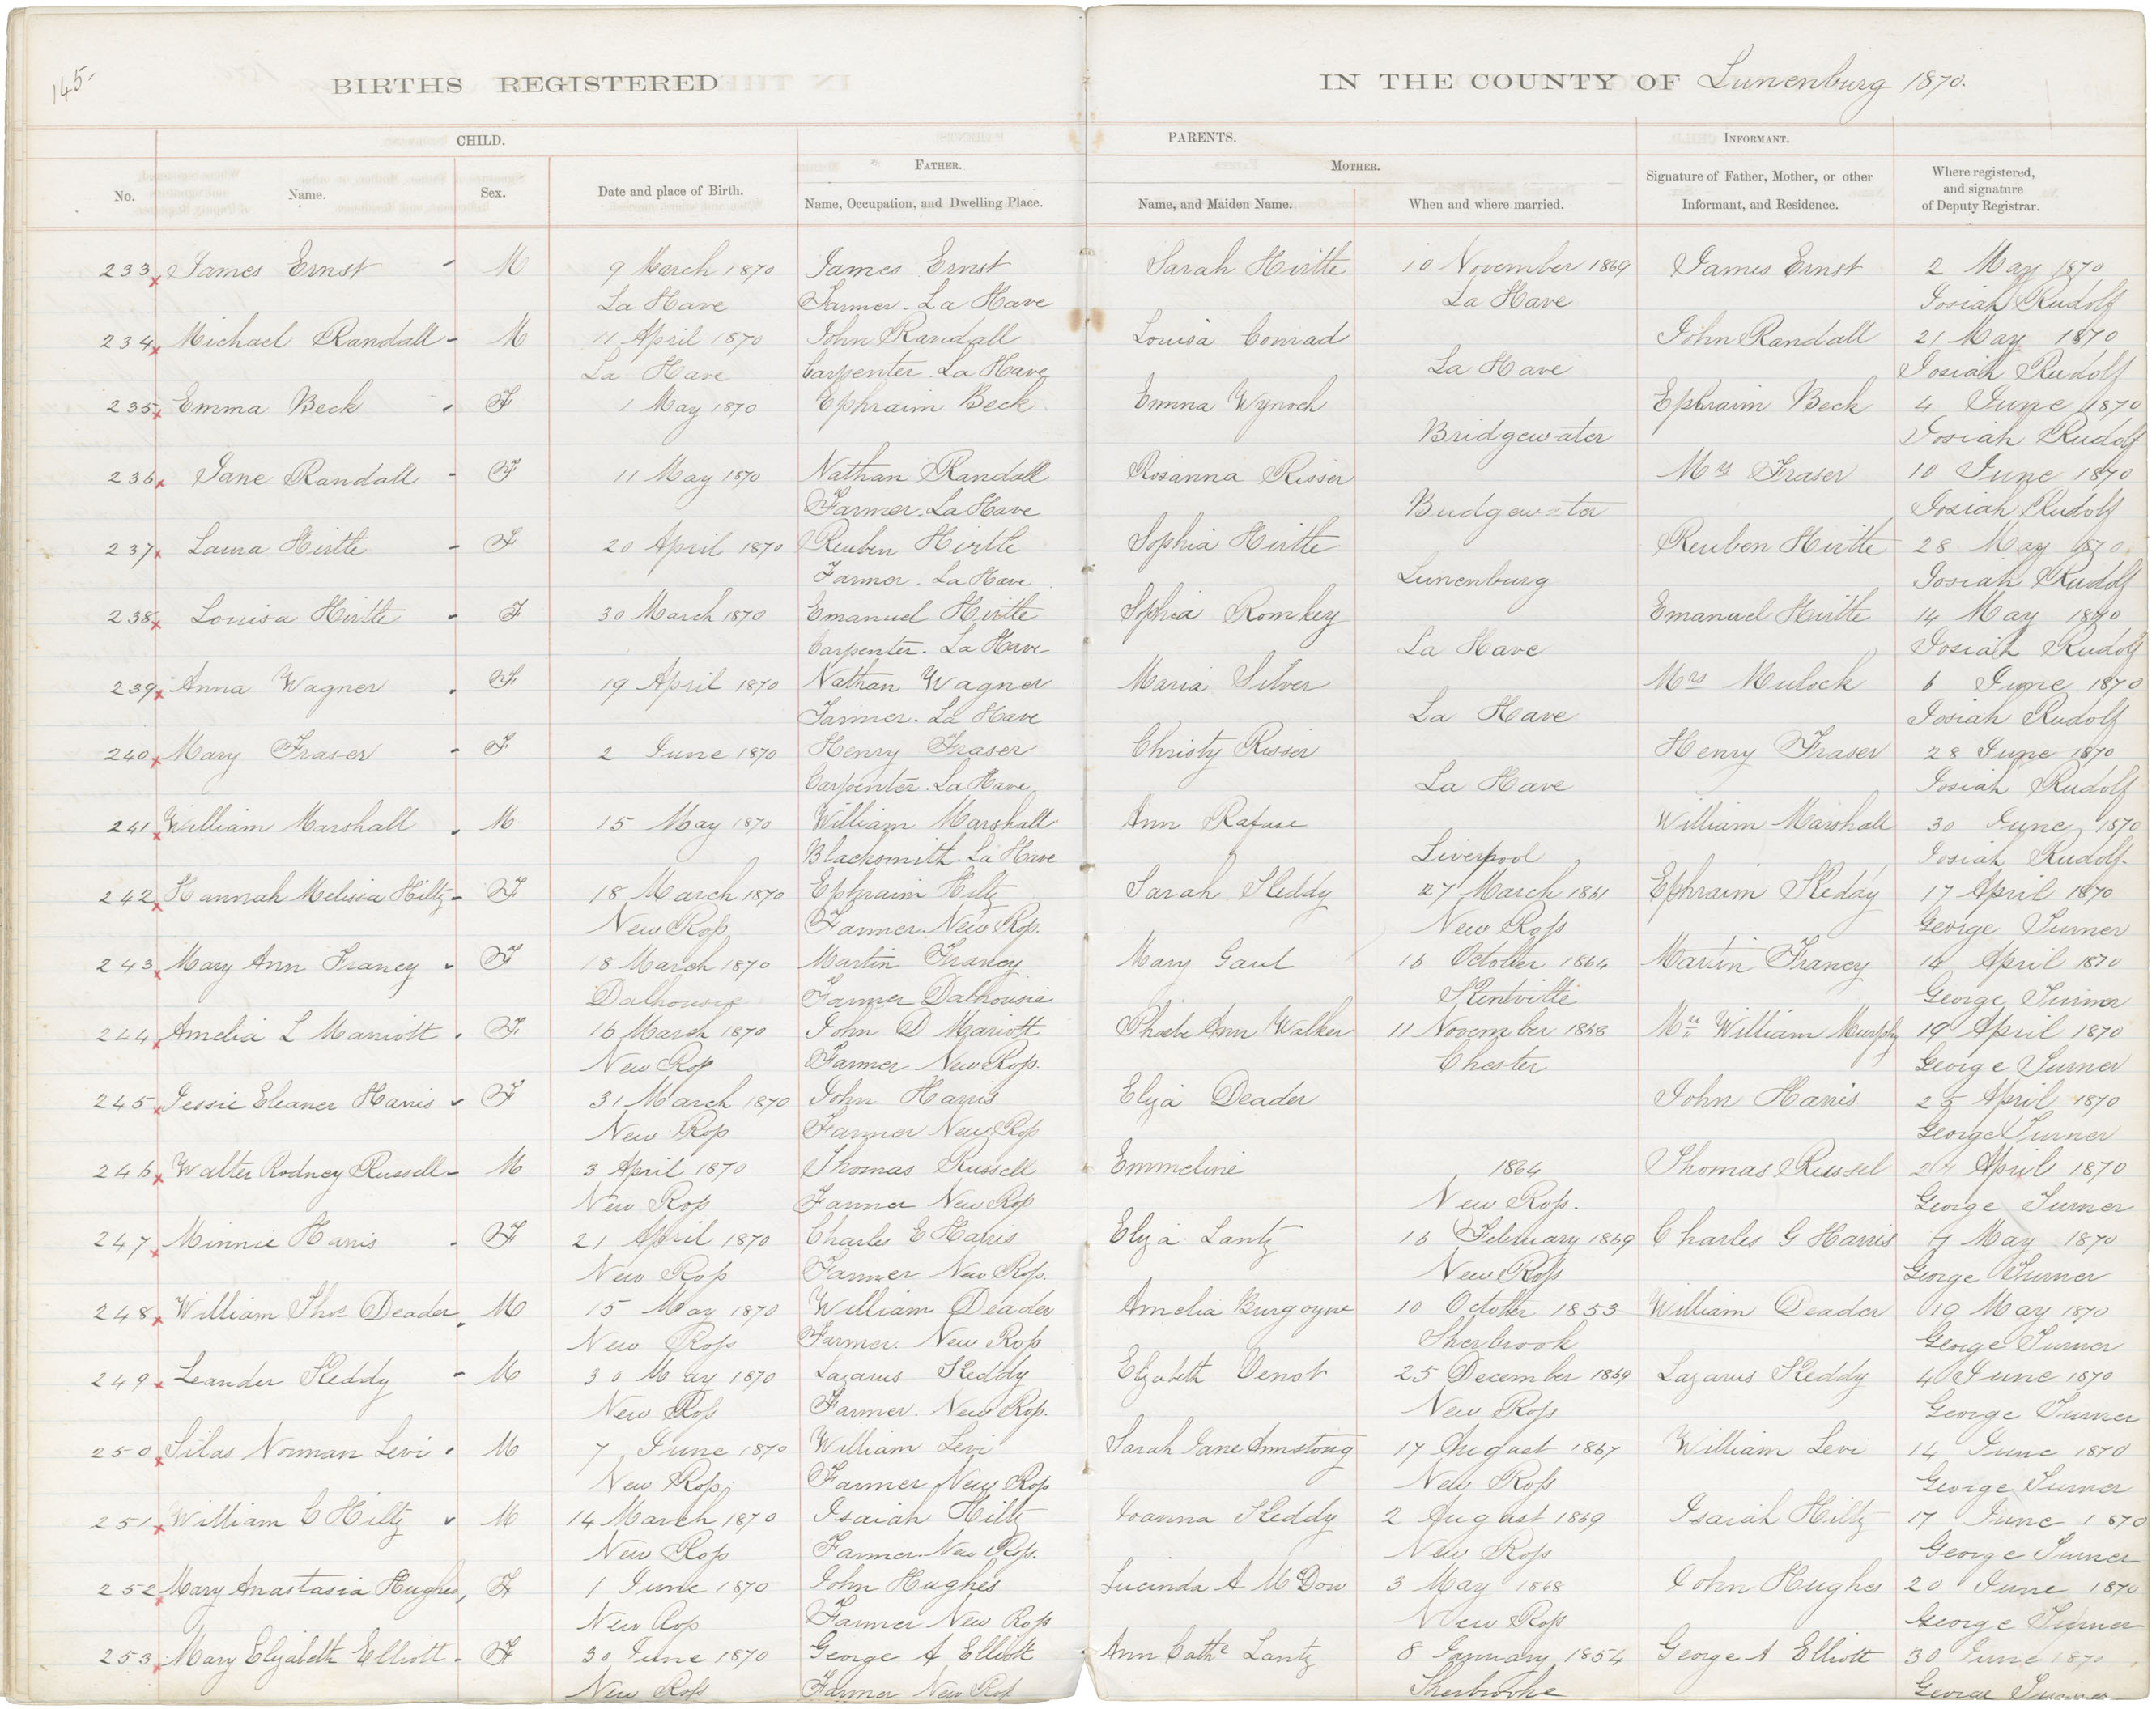 145.
BIRTHS REGISTERED IN THE COUNTY OF Lunenburg 1870.
CHILD. PARENTS. INFORMANT.
FATHER. MOTHER.
No. Name. Sex. Date and place of Birth. Name, Occupation, and Dwelling Place. Name, and Maiden Name. When and where married. Signature of Father, Mother, or other Informant, and Residence. Where registered, and signature of Deputy Registrar.
233 James Ernst - M 9 March 1870 James Ernst Sarah Hirtle 10 November 1869 James Ernst 2 May 1870
La Have Farmer. La Have La Have Josiah Rudolf
234 Michael Randall - M 11 April 1870 John Randall Louisa Conrad John Randall 21 May 1870
La Have Carpenter. La Have La Have Josiah Rudolf
235 Emma Beck F 1 May 1870 Ephraim Beck Emma Wynoch Ephraim Beck 4 June 1870
Bridgewater Josiah Rudolf
236 Jane Randall - F 11 May 1870 Nathan Randall Rosanna Risser Mrs Fraser 10 June 1870
Farmer. La Have Bridgewater Josiah Rudolf
237 Laura Hirtle - F 20 April 1870 Reuben Hirtle Sophia Hirtle Reuben Hirtle 28 May 1870
Farmer. La Have Lunenburg Josiah Rudolf
238 Louisa Hirtle - F 30 March 1870 Emanuel Hirtle Sophia Romkey Emanuel Hirtle 14 May 1870
Carpenter. La Have La Have Josiah Rudolf
239 Anna Wagner . F 19 April 1870 Nathan Wagner Maria Silver Mrs Mulock 6 June 1870
Farmer. La Have La Have Josiah Rudolf
240 Mary Fraser - F 2 June 1870 Henry Fraser Christy Risser Henry Fraser 28 June 1870
Carpenter. La Have La Have Josiah Rudolf
241 William Marshall . M 15 May 1870 William Marshall Ann Rafuse William Marshall 30 June 1870
Blacksmith. La Have Liverpool Josiah Rudolf.
242 Hannah Melissa Hiltz - F 18 March 1870 Ephraim Hiltz Sarah Keddy 27 March 1861 Ephraim Keddy 17 April 1870
New Ross Farmer. New Ross. New Ross George Turner
243 Mary Ann Francy F 18 March 1870 Martin Francy Mary Gaul 16 October 1864 Martin Francy 14 April 1870
Dalhousie Farmer Dalhousie Kentville George Turner
244 Amelia L Marriott . F 16 March 1870 John D Mariott Phoebe Ann Walker 11 November 1868 William Murphy 19 April 1870
New Ross Farmer New Ross. Chester George Turner
245 Jessie Eleaner Harris F 31 March 1870 John Harris Eliza Deader John Harris 25 April 1870
New Ross Farmer New Ross George Turner
246 Walter Rodney Russell - M 3 April 1870 Thomas Russell Emmeline 1864 Thomas Russel 27 April 1870
New Ross Farmer New Ross New Ross. George Turner
247 Minnie Harris . F 21 April 1870 Charles E Harris Eliza Lantz 16 February 1869 Charles G Harris 7 May 1870
New Ross Farmer New Ross. New Ross George Turner
248 William Thos Deader . M 15 May 1870 William Deader Amelia Burgoyne 10 October 1853 William Deader 19 May 1870
New Ross Farmer. New Ross Sherbrook George Turner
249 Leander Keddy - M 30 May 1870 Lazarus Keddy Elizabeth Venot 25 December 1869 Lazarus Keddy 4 June 1870
New Ross Farmer. New Ross. New Ross George Turner
250 Silas Norman Levi . M 7 June 1870 William Levi Sarah Jane Armstong 17 August 1867 William Levi 14 June 1870
New Ross. Farmer New Ross New Ross George Turner
251 William C Hiltz M 14 March 1870 Isaiah Hiltz Joanna Keddy 2 August 1869 Isaiah Hiltz 17 June 1870
New Ross Farmer. New Ross. New Ross George Turner
252 Mary Anastasia Hughes, F 1 June 1870 John Hughes Lucinda A McDow 3 May 1868 John Hughes 20 June 1870
New Ross Farmer New Ross New Ross George Turner
253 Mary Elizabeth Elliott - F 30 June 1870 George A Elliott Ann Cathe Lantz 8 January 1854 George A Elliott 30 June 1870
New Ross Farmer New Ross Sherbrooke George Turner